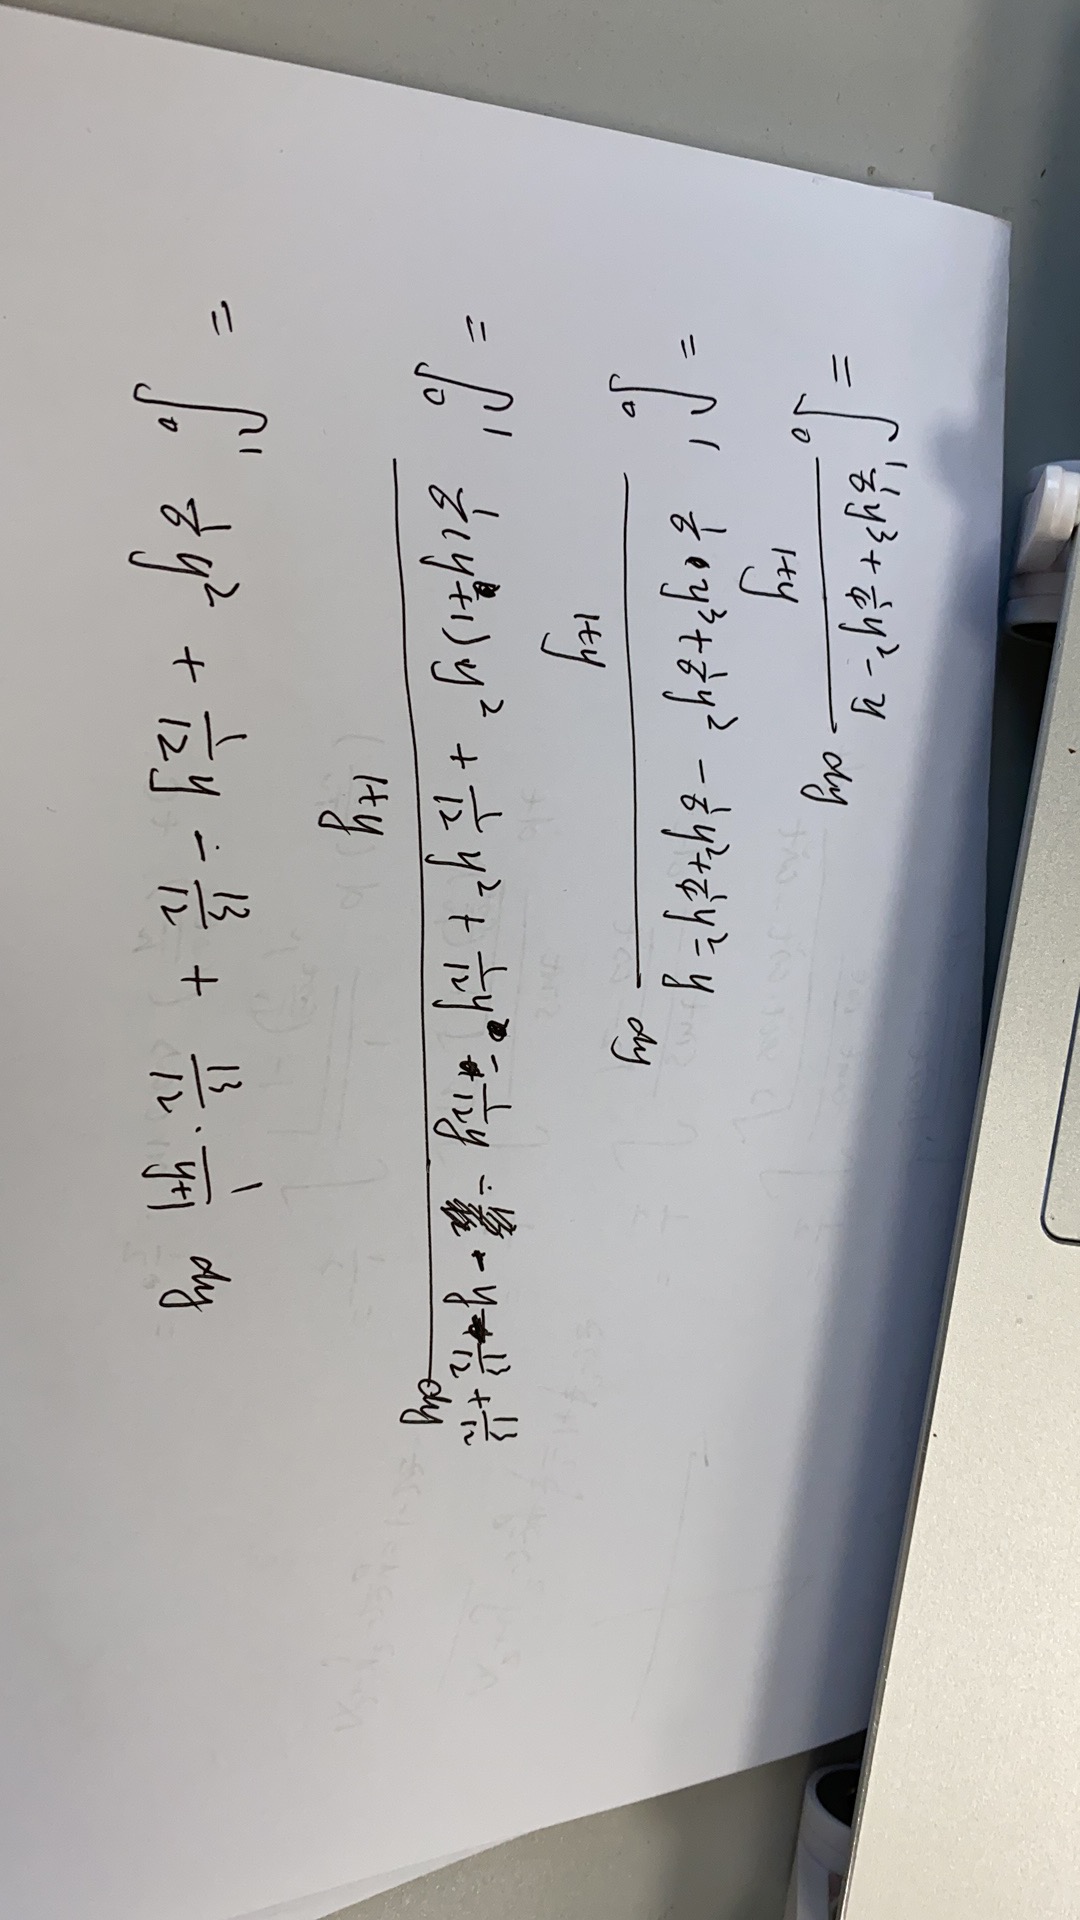 = ∫₀¹ (1/6 y³ + 1/4 y² - y)/(1+y) dy
= ∫₀¹ (1/6 y³ + 1/6 y² - 1/6 y² + 1/4 y² - y)/(1+y) dy
= ∫₀¹ (1/6 (y+1) y² + 1/12 y² + 1/12 y - 1/12 y - y - 13/12 + 13/12)/(1+y) dy
= ∫₀¹ 1/6 y² + 1/12 y - 13/12 + 13/12 · 1/(y+1) dy